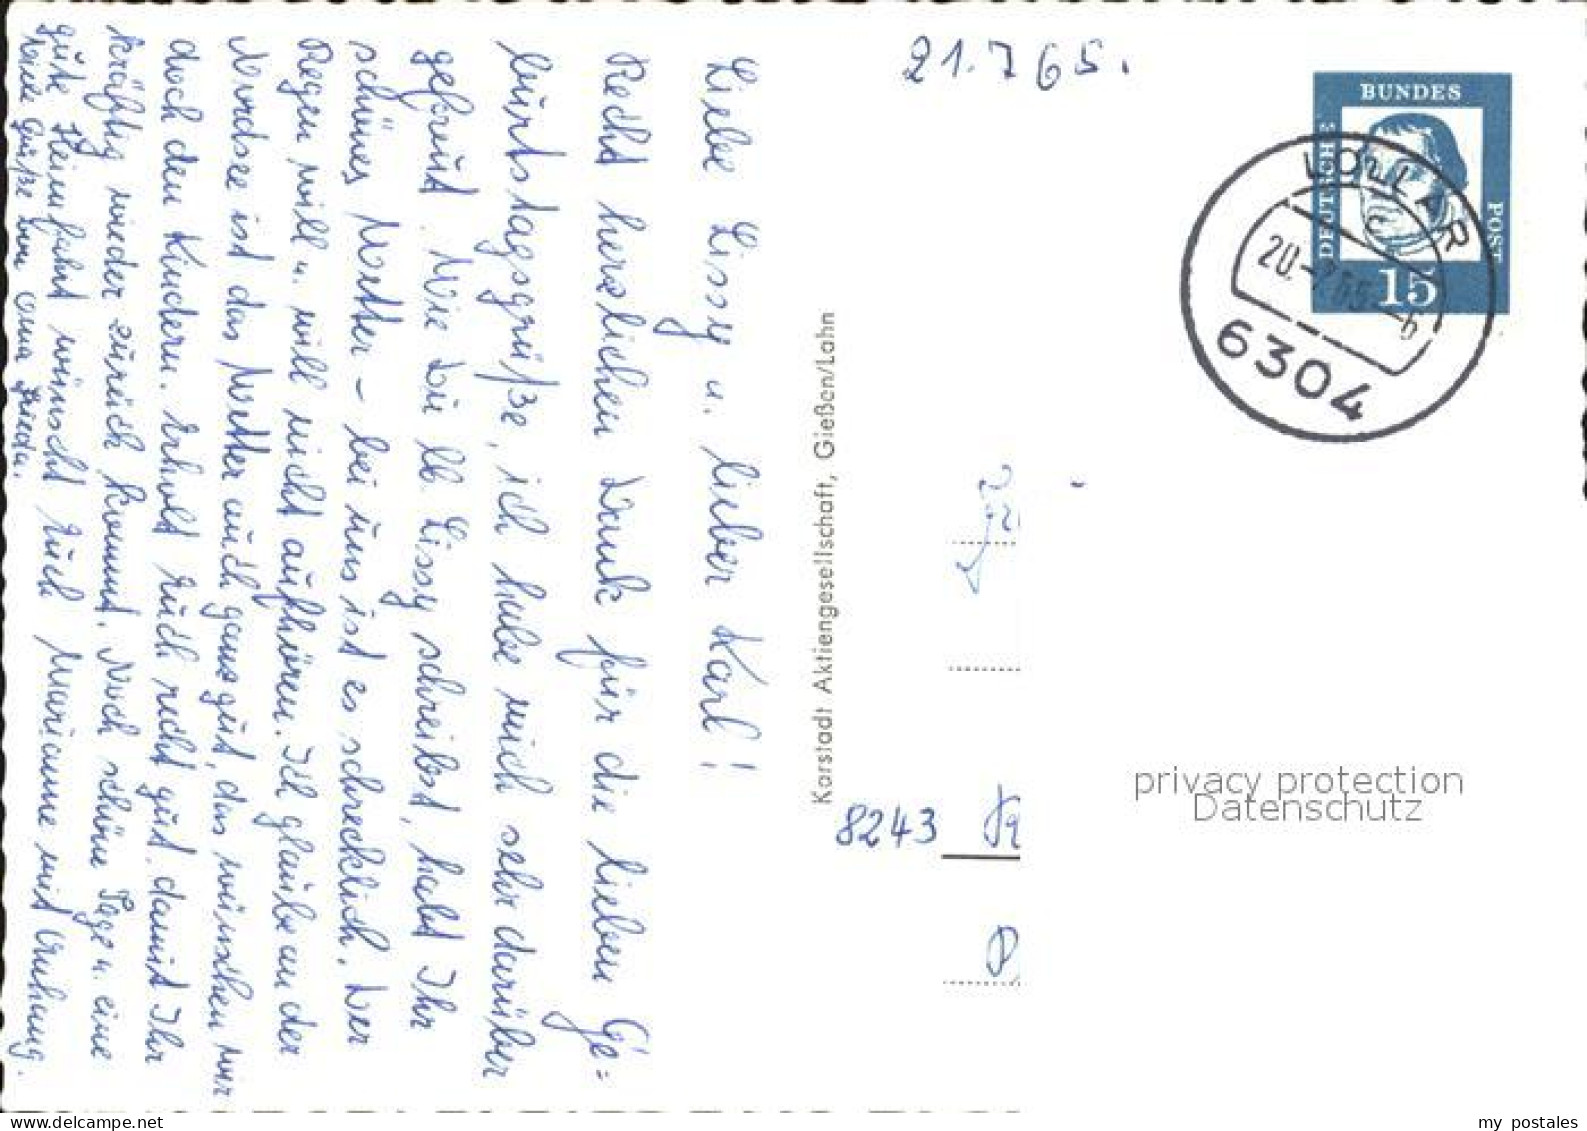 21.7.65.
Liebe Lissy u. lieber Karl!
Recht herzlichen Dank für die lieben Ge=
burtstagsgrüße, ich habe mich sehr darüber
gefreut. Wie Du lb. Lissy schreibst, habt Ihr
schönes Wetter – bei uns ist es schrecklich. Der
Regen will u. will nicht aufhören. Ich glaube an der
Nordsee ist das Wetter auch ganz gut, das wünschen wir
doch den Kindern. Erholt Euch recht gut, damit Ihr
kräftig wieder zurück kommt. Noch schöne Tage u. eine
gute Heimfahrt wünscht Euch Marianne mit Anhang.
Grüße von Oma
Karstadt Aktiengesellschaft, Gießen/Lahn
DEUTSCHE
BUNDES
POST
15
LOLLAR
20.-7.65
6304
8243
privacy protection
Datenschutz
delcampe.net
my_postales